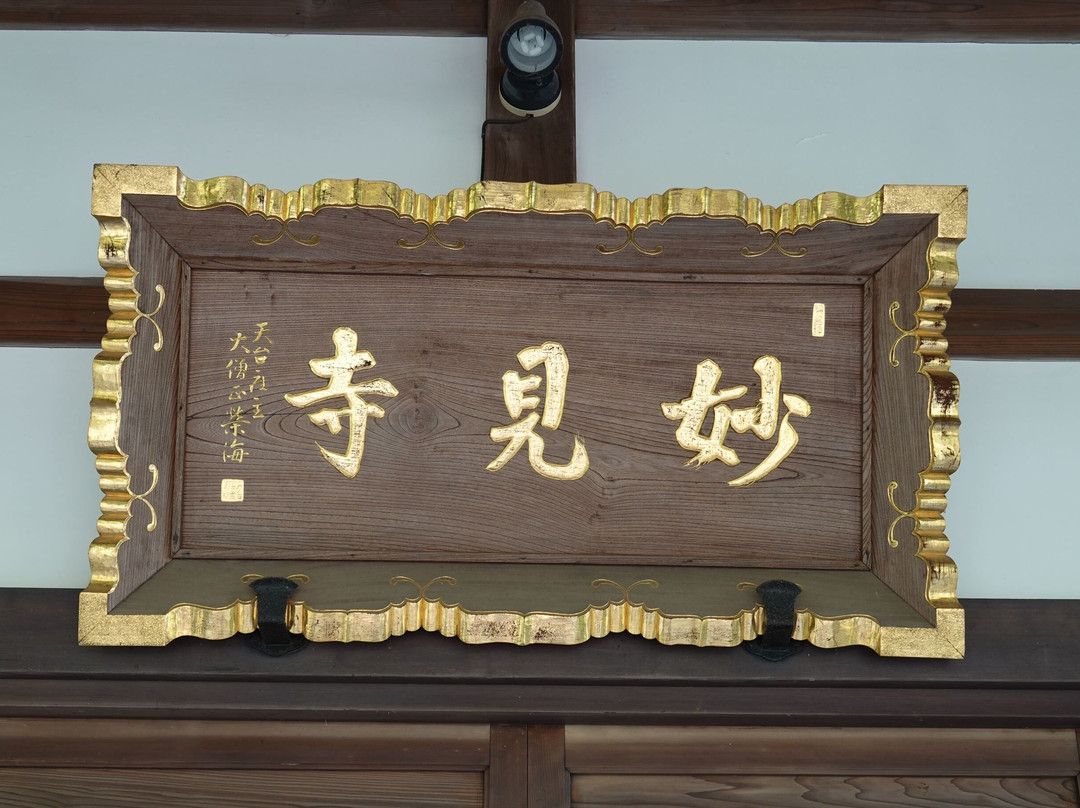 妙見寺
天台座主
大僧正榮海